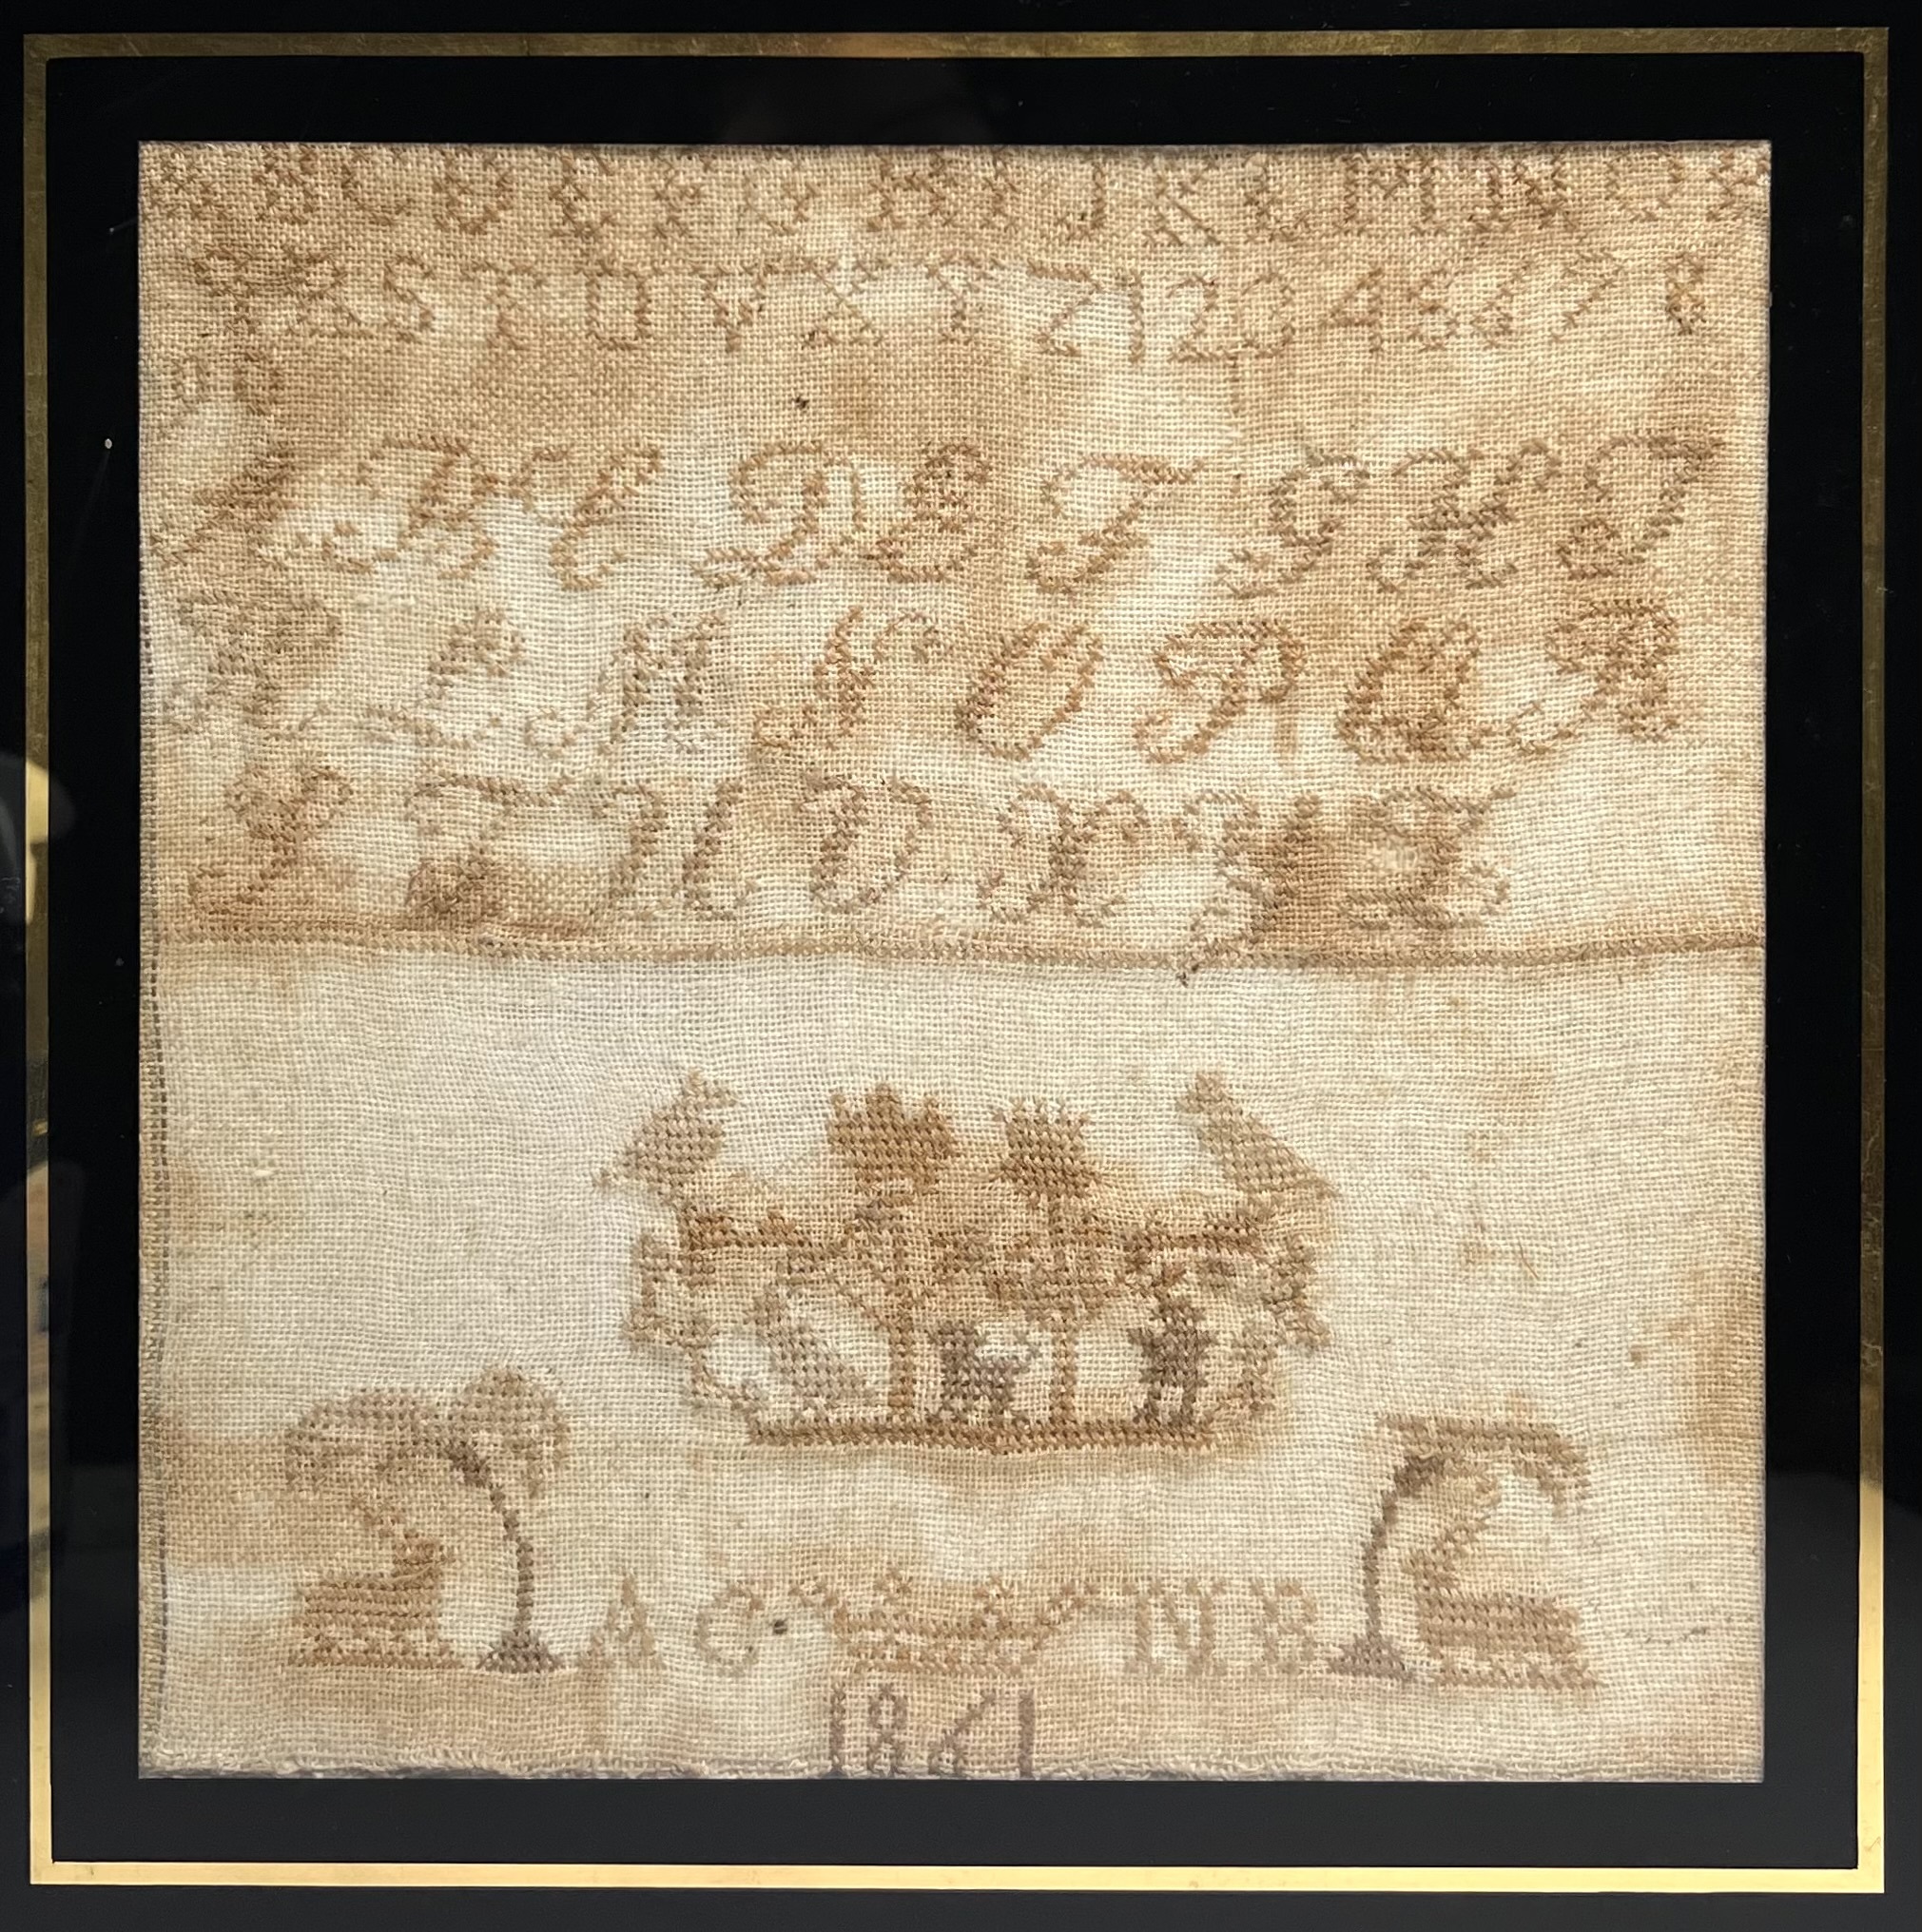 A B C D E F G H I J K L M N O P
Q R S T U V X Y Z 1 2 3 4 5 6 7 8
9 0
A B C D E F G H I
K L M N O P Q R
S T U V X Y Z
A C N R
1861